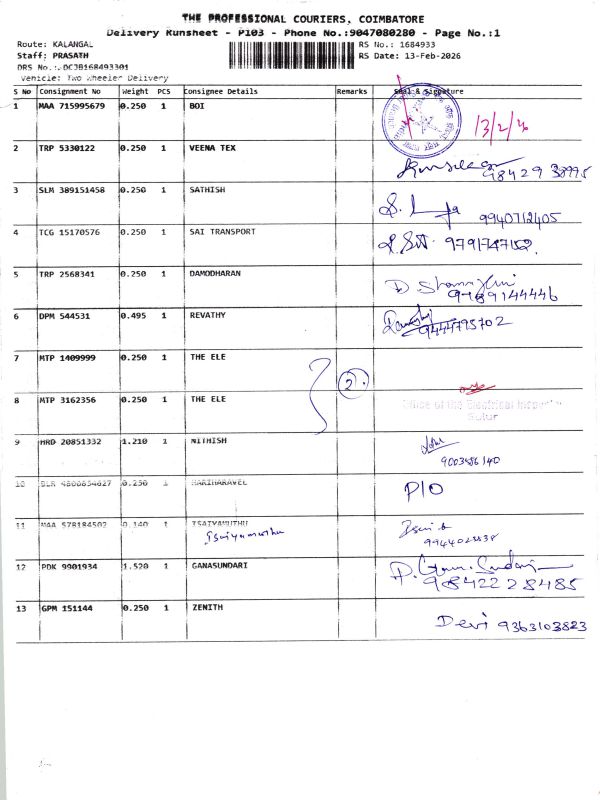 THE PROFESSIONAL COURIERS, COIMBATORE
Delivery Runsheet - P103 - Phone No.:9047080280 - Page No.:1
Route: KALANGAL RS No.: 1684933
Staff: PRASATH RS Date: 13-Feb-2026
DRS No.:.DCJB168493301
Vehicle: Two Wheeler Delivery
S No Consignment No Weight PCS Consignee Details Remarks Seal & Signature
1 MAA 715995679 0.250 1 BOI
13/2/26
2 TRP 5330122 0.250 1 VEENA TEX
98429 38995
3 SLM 389151458 0.250 1 SATHISH
9940712405
4 TCG 15170576 0.250 1 SAI TRANSPORT
9791747152
5 TRP 2568341 0.250 1 DAMODHARAN
9789144446
6 DPM 544531 0.495 1 REVATHY
9444795702
7 MTP 1409999 0.250 1 THE ELE
2
8 MTP 3162356 0.250 1 THE ELE
Office of the Electrical Inspector
Sulur
9 HRD 20851332 1.210 1 NITHISH
9003486140
10 BLR 4800854627 0.250 1 HARIHARAVEL P/O
11 MAA 578184502 0.140 1 TSAIYAMUTHU
Tsaiyamuthu
9944022838
12 PDK 9901934 1.520 1 GANASUNDARI
9842228485
13 GPM 151144 0.250 1 ZENITH
Devi 9363103823